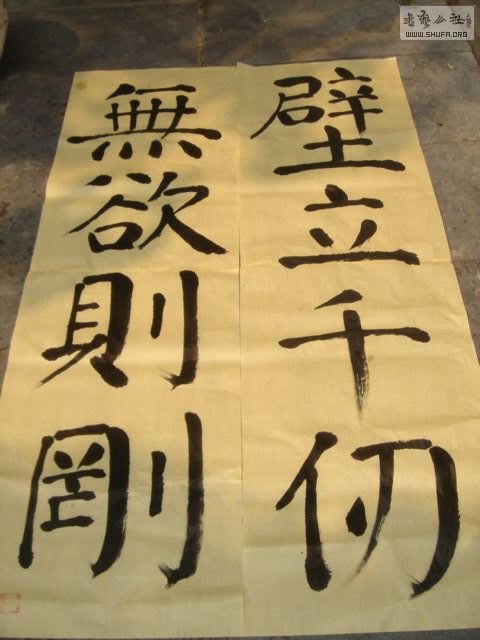 壁立千仞
無欲則剛
書藝公社
WWW.SHUFA.ORG